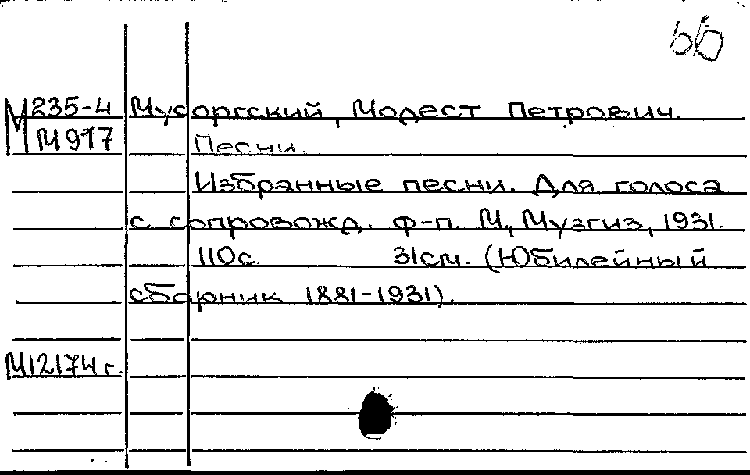 бб
М 235-4 Мусоргский, Модест Петрович.
М917 Песни.
Избранные песни. Для голоса
с сопровожд. ф-п. М, Музгиз, 1931.
110с. 31см. (Юбилейный
сборник 1881-1931).
М12174г.